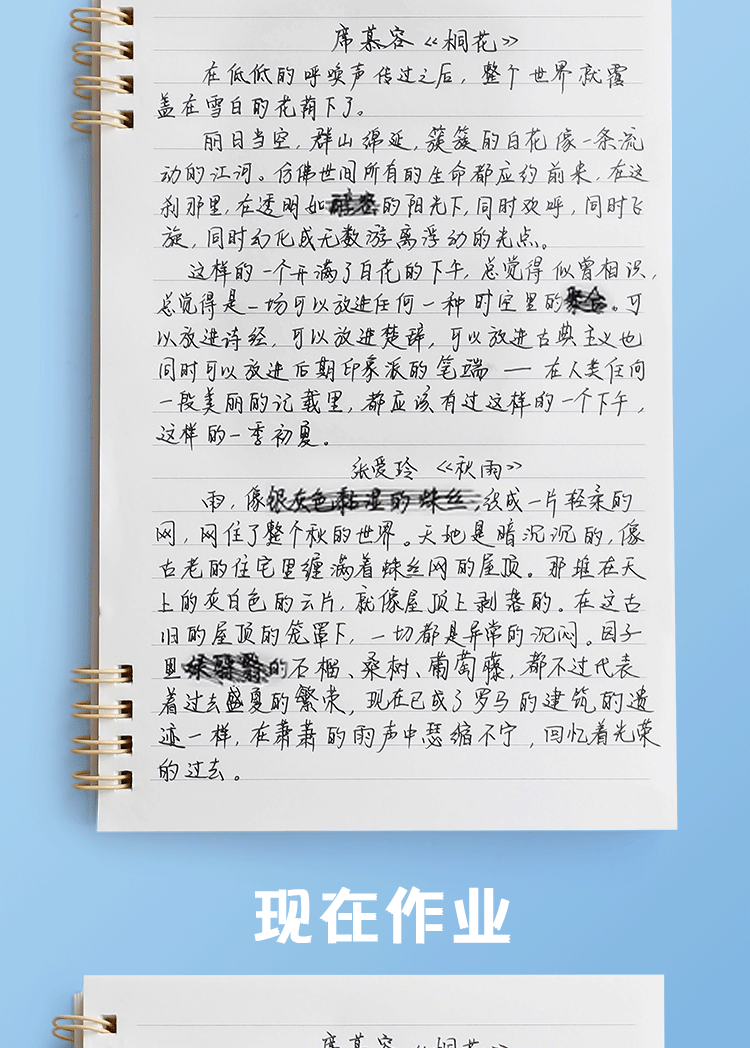 席慕容《桐花》
在低低的呼唤声传过之后，整个世界就覆
盖在雪白的花荫下了。
丽日当空，群山绵延，簇簇的白花像一条流
动的江河。仿佛世间所有的生命都应约前来，在这
刹那里，在透明如的阳光下，同时欢呼，同时飞
旋，同时幻化成无数游离浮动的光点。
这样的一个开满了白花的下午，总觉得似曾相识，
总觉得是一场可以放进任何一种时空里的聚合。可
以放进诗经，可以放进楚辞，可以放进古典主义也
同时可以放进后期印象派的笔端——在人类任何
一段美丽的记载里，都应该有过这样的一个下午，
这样的一季初夏。
张爱玲《秋雨》
雨，像银灰色黏湿的蛛丝，织成一片轻柔的
网，网住了整个秋的世界。天地是暗沉沉的，像
古老的住宅里缠满着蛛丝网的屋顶。那堆在天
上的灰白色的云片，就像屋顶上剥落的。在这古
旧的屋顶的笼罩下，一切都是异常的沉闷。园子
里的石榴、桑树、葡萄藤，都不过代表
着过去盛夏的繁荣，现在已成了罗马的建筑的遗
迹一样，在萧萧的雨声中瑟缩不宁，回忆着光荣
的过去。
现在作业
席慕容《桐花》